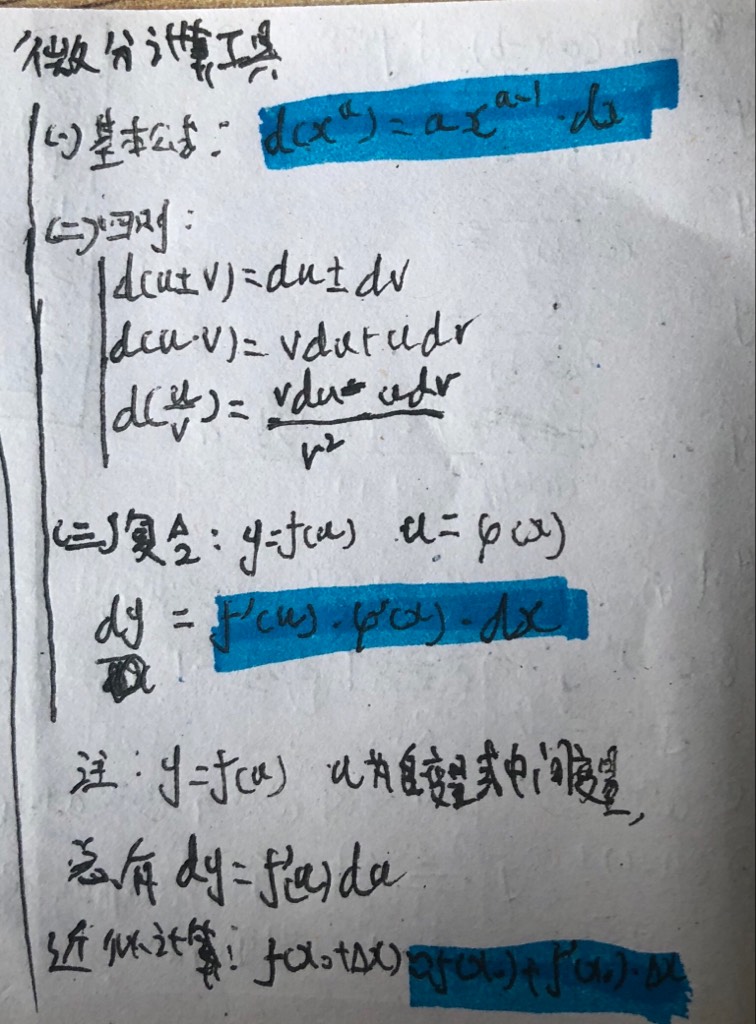 微分计算工具
(一)基本公式: d(x^a)=ax^{a-1}·dx
(二)四则:
d(u±v)=du±dv
d(u·v)=vdu+udv
d(u/v)=(vdu-udv)/v²
(三)复合: y=f(u) u=φ(x)
dy = f'(u)·φ'(x)·dx
注: y=f(u) u为自变量或中间变量,
总有 dy=f'(u)du
近似计算: f(x₀+Δx)≈f(x₀)+f'(x₀)·Δx